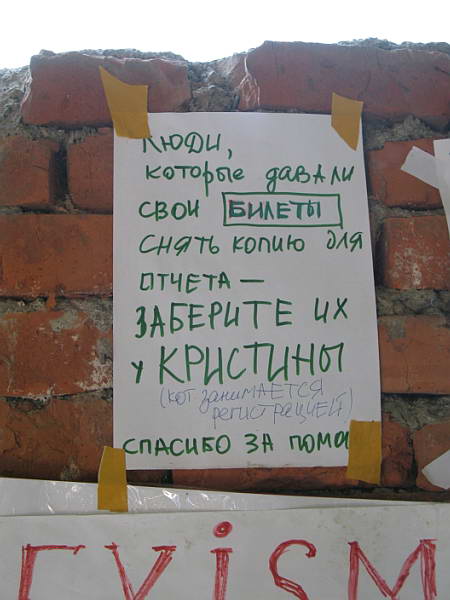 ЛЮДИ,
которые давали
свои БИЛЕТЫ
снять копию для
отчета —
ЗАБЕРИТЕ ИХ
у КРИСТИНЫ
(кот занимается
регистрацией)
СПАСИБО ЗА